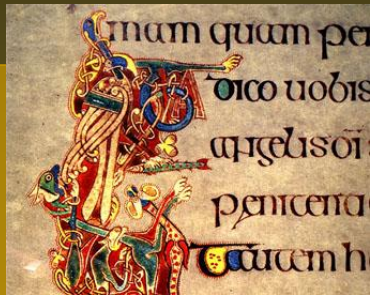 mam quam per
dico uobis
angelis dī
penitentia
autem h